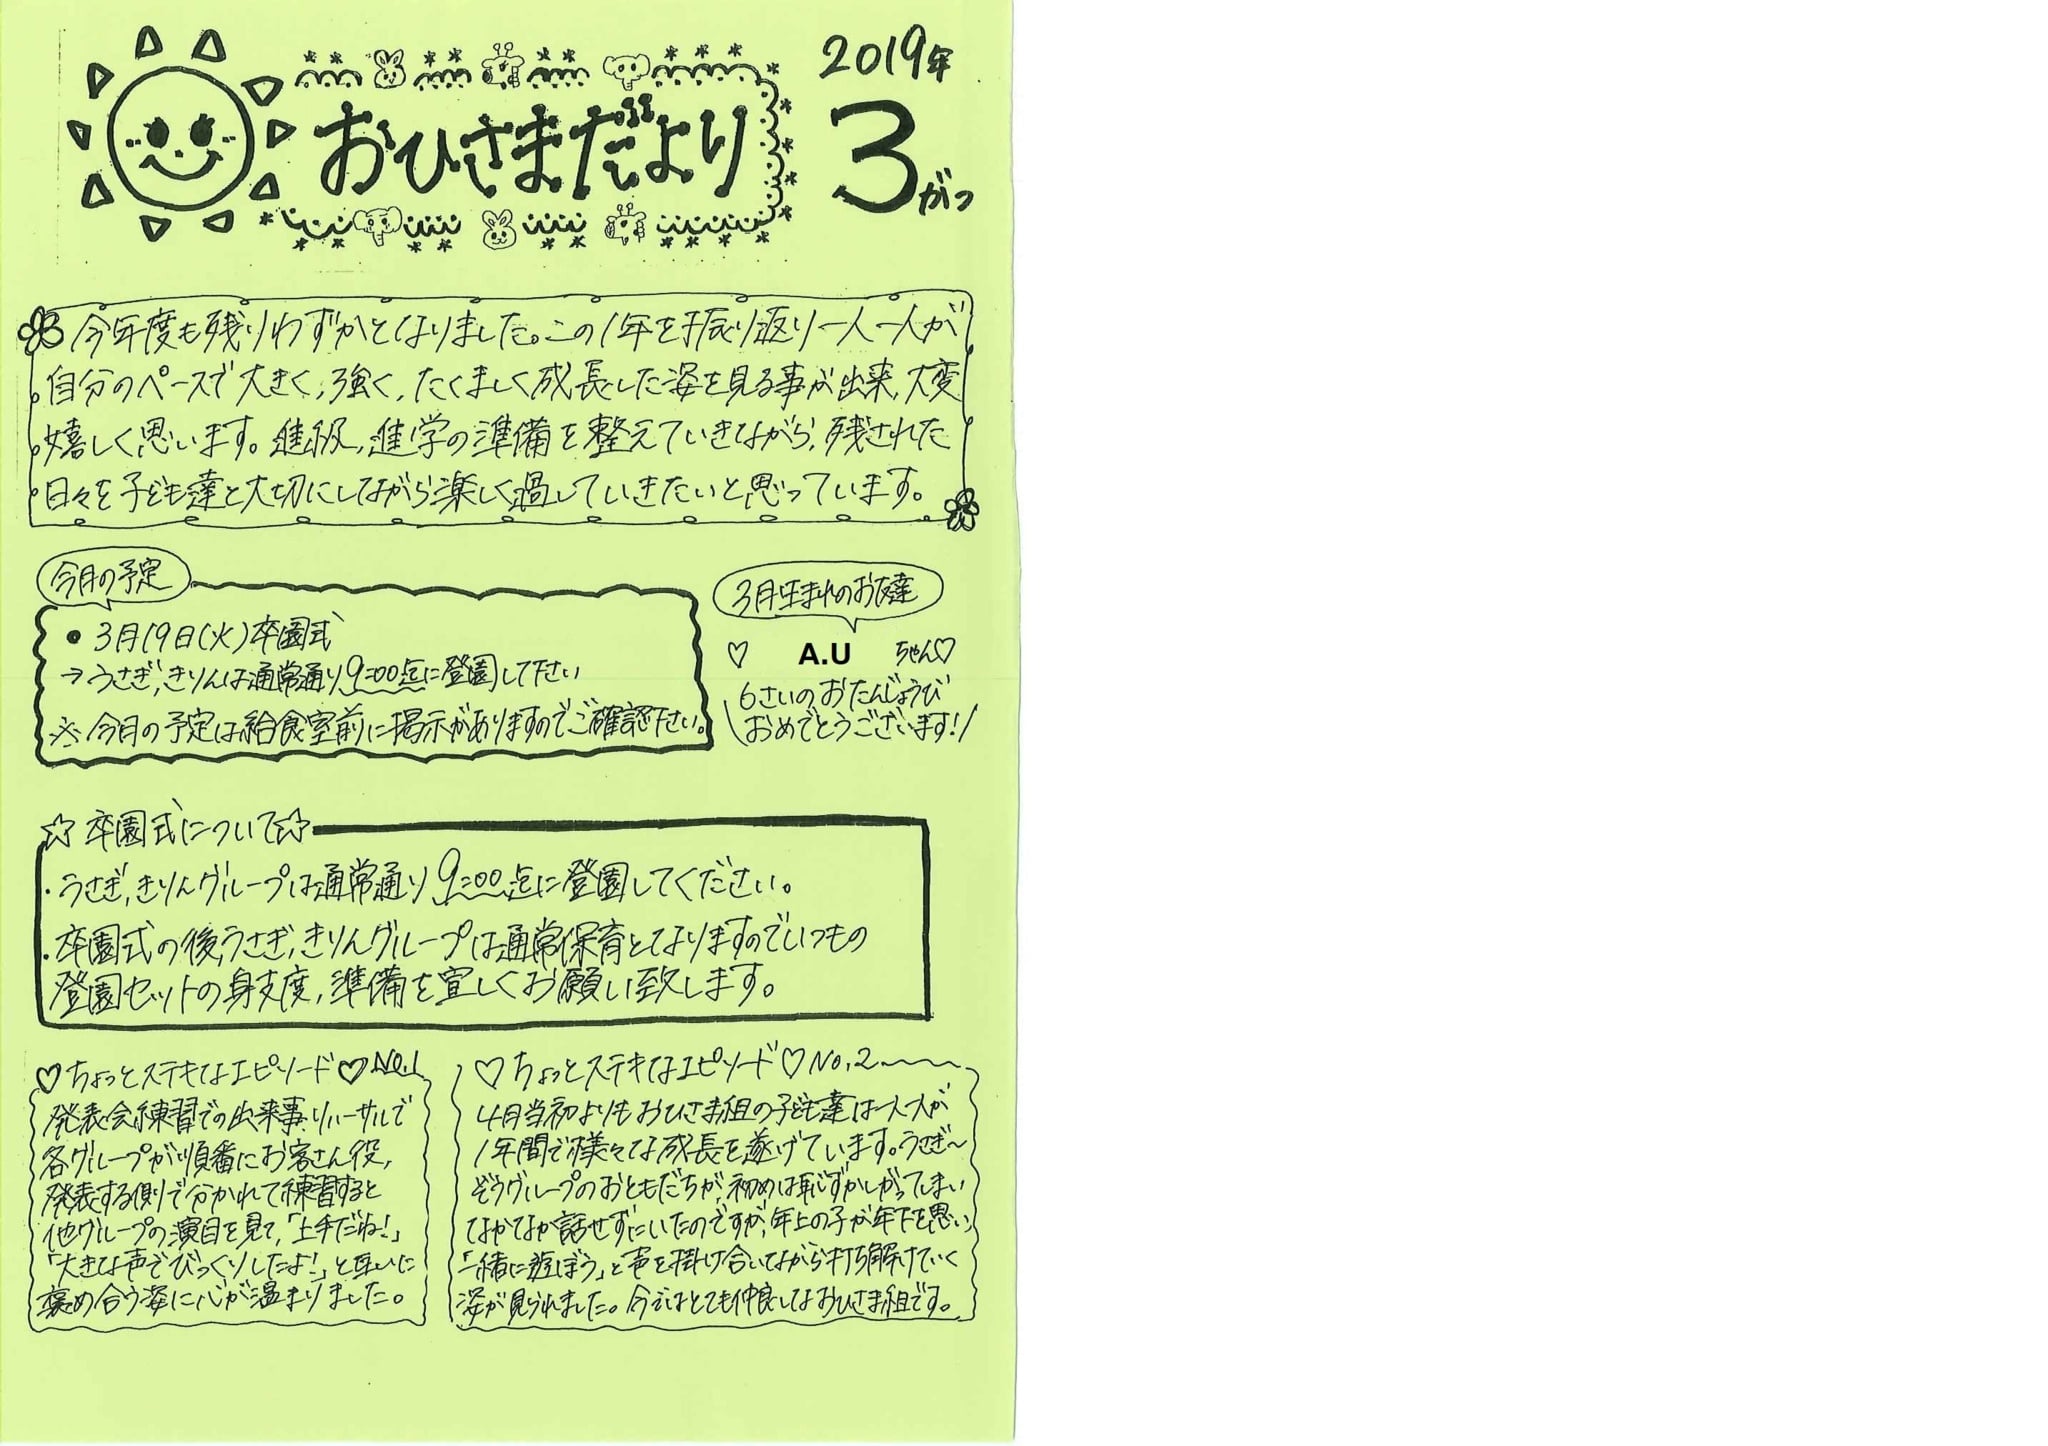 おひさまだより
2019年
3がつ
今年度も残りわずかとなりました。この1年を振り返り一人一人が
自分のペースで大きく、強く、たくましく成長した姿を見る事が出来、大変
嬉しく思います。進級、進学の準備を整えていきながら、残された
日々を子ども達と大切にしながら楽しく過していきたいと思っています。
今月の予定
• 3月19日(火)卒園式
→うさぎ、きりんは通常通り9:00迄に登園して下さい
※今月の予定は給食室前に掲示がありますのでご確認下さい。
3月生まれのお友達
♡ A.U ちゃん♡
\6さいのおたんじょうび
おめでとうございます!/
☆卒園式について☆
・うさぎ、きりんグループは通常通り9:00迄に登園してください。
・卒園式の後、うさぎ、きりんグループは通常保育となりますのでいつもの
登園セットの身支度、準備を宜しくお願い致します。
♡ちょっとステキなエピソード♡No.1
発表会練習での出来事、リハーサルで
各グループが順番にお客さん役、
発表する側で分かれて練習すると
他グループの演目を見て、「上手だね!」
「大きな声でびっくりしたよ!」と互いに
褒め合う姿に心が温まりました。
♡ちょっとステキなエピソード♡No.2
4月当初よりもおひさま組の子ども達は一人一人が
1年間で様々な成長を遂げています。うさぎ〜
ぞうグループのおともだちが、初めは恥ずかしがってしまい
なかなか話せずにいたのですが、年上の子が年下を思い、
「一緒に遊ぼう」と声を掛け合いながら打ち解けていく
姿が見られました。今ではとても仲良しなおひさま組です。